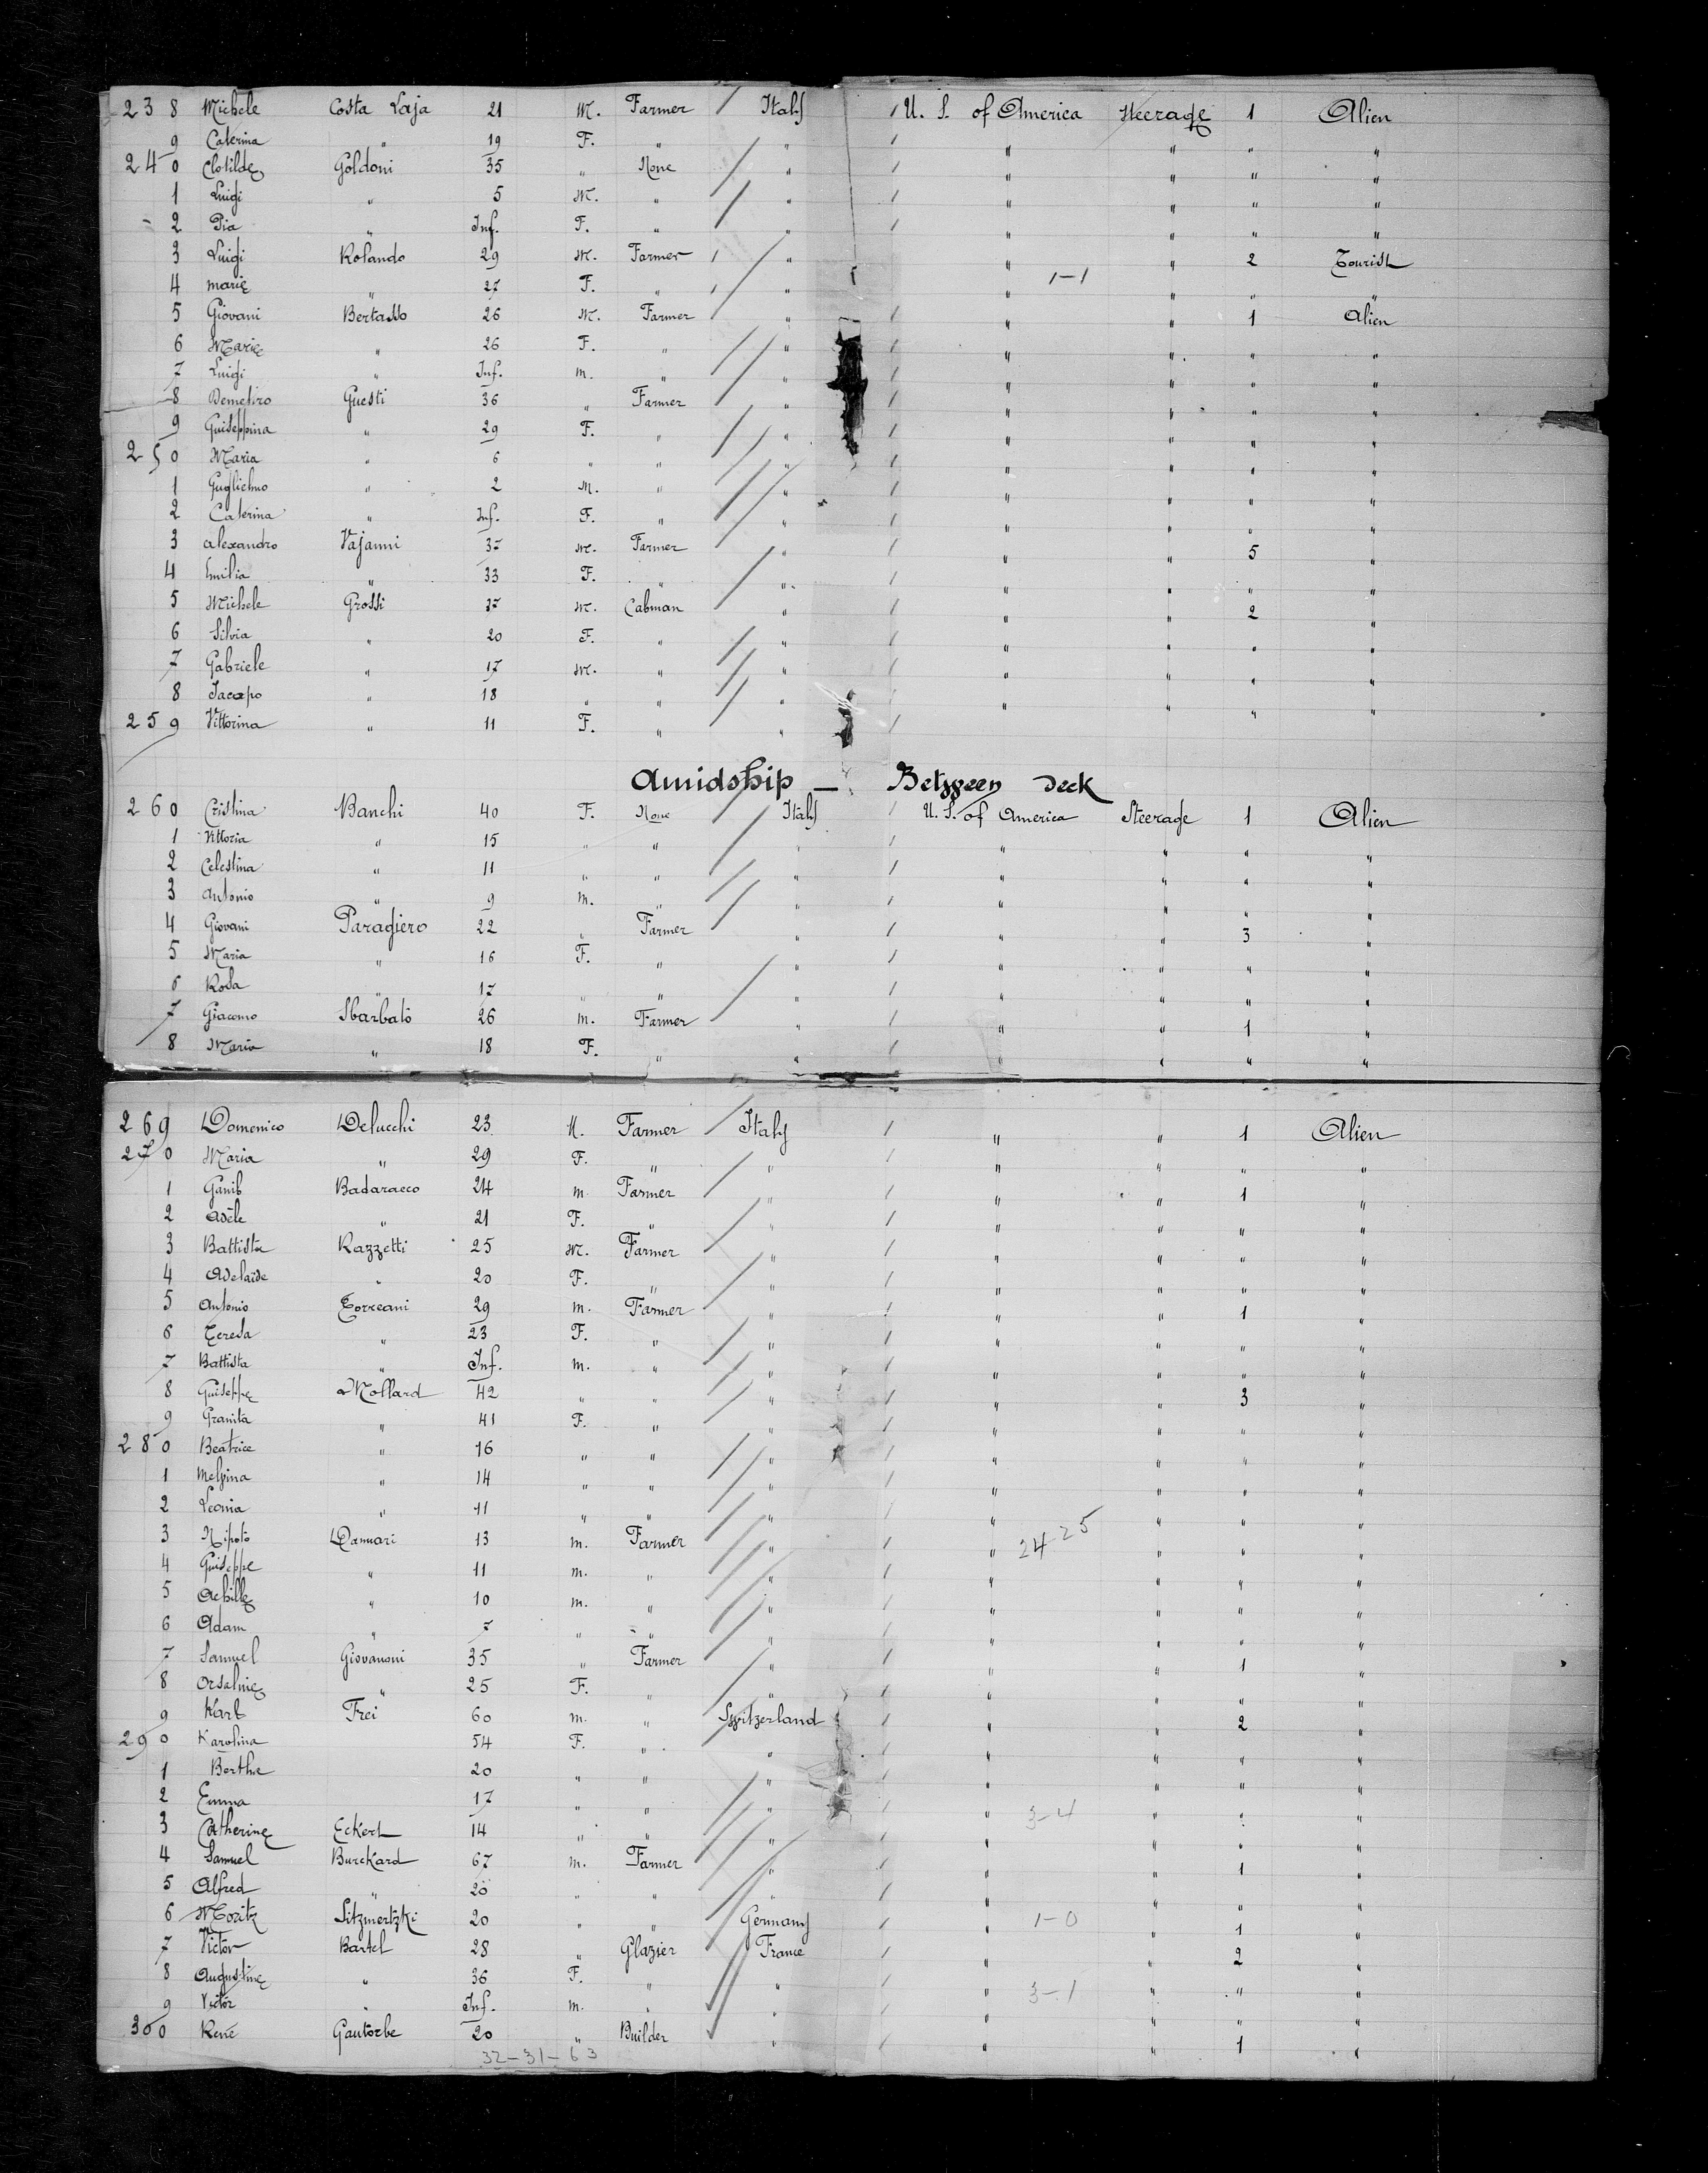 238 Michele Costa Laja 21 M. Farmer Italy U. S. of America Steerage 1 Alien
9 Caterina " 19 F. " " " " " "
240 Clotilde Goldoni 35 " None " " " " "
1 Luigi " 5 M. " " " " " "
2 Pia " Inf. F. " " " " " "
3 Luigi Rolando 29 M. Farmer " " " 2 Tourist
4 Marie " 27 F. " " " 1-1 " " "
5 Giovani Bertasso 26 M. Farmer " " " 1 Alien
6 Marie " 26 F. " " " " " "
7 Luigi " Inf. m. " " " " " "
8 Demetiro Guesti 36 " Farmer " " " " "
9 Guiseppina " 29 F. " " " " " "
250 Maria " 6 " " " " " " "
1 Guglielmo " 2 M. " " " " " "
2 Caterina " Inf. F. " " " " " "
3 Alexandro Vajanni 37 M. Farmer " " " 5 "
4 Emilia " 33 F. " " " " " "
5 Michele Grossi 37 M. Cabman " " " 2 "
6 Silvia " 20 F. " " " " " "
7 Gabriele " 17 M. " " " " " "
8 Jacapo " 18 " " " " " " "
259 Vittorina " 11 F. " "
Amidship — Between deck
260 Cristina Banchi 40 F. None Italy U. S. of America Steerage 1 Alien
1 Vittoria " 15 " " " " " " "
2 Celestina " 11 " " " " " " "
3 Antonio " 9 m. " " " " " "
4 Giovani Paragiero 22 " Farmer " " " 3 "
5 Maria " 16 F. " " " " " "
6 Rosa " 17 " " " " " " "
7 Giacomo Sbarbato 26 m. Farmer " " " 1 "
8 Maria " 18 F. " " " " " "
269 Domenico Delucchi 23 M. Farmer Italy " " 1 Alien
270 Maria " 29 F. " " " " " "
1 Badaracco 24 m Farmer " " " 1 "
2 Adèle " 21 F. " " " " " "
3 Battista Razzetti 25 M. Farmer " " " " "
4 Adelaïde " 20 F. " " " " " "
5 Antonio Torreani 29 m. Farmer " " " 1 "
6 Teresa " 23 F. " " " " " "
7 Battista " Inf. m. " " " " " "
8 Guiseppe Mollard 42 " " " " " 3 "
9 Granita " 41 F. " " " " " "
280 Beatrice " 16 " " " " " " "
1 Melgina " 14 " " " " " " "
2 Leonia " 11 " " " " " " "
3 Nipoto Damari 13 m. Farmer " " 24-25 " " "
4 Guiseppe " 11 m. " " " " " "
5 Achille " 10 m. " " " " " "
6 Adam " 7 " " " " " " "
7 Samuel Giovanoni 35 " Farmer " " " 1 "
8 Orsalnie " 25 F. " " " " " "
9 Karl Frei 60 m. " Switzerland " " 2 "
290 Karolina 54 F. " " " " " "
1 Berthe 20 " " " " " " "
2 Emma 17 " " " " 3-4 " " "
3 Catherine Eckert 14 " " " " " " "
4 Samuel Burckard 67 m. Farmer " " " 1 "
5 Alfred " 20 " " " " " " "
6 Moritz Sitzmertzki 20 " " Germany " 1-0 " 1 "
7 Victor Bartel 28 " Glazier France " " 2 "
8 Augustine " 36 F. " " " 3-1 " " "
9 Victor " Inf. m. " " " " " "
300 René Gautorbe 20 " Builder " " " 1 "
32-31-63